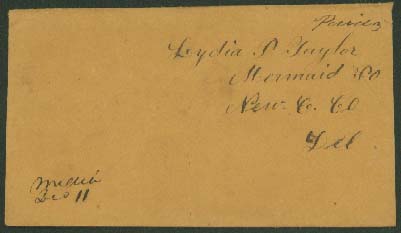 Lydia P Taylor
Mermaid PO
New C. Co
Del
Media
Dec 11